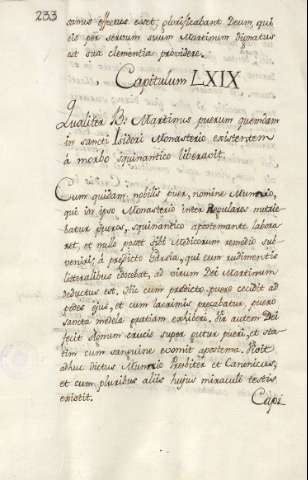 233
sanus effectus esset; glorificabant Deum, qui
eis per servum suum Martinum dignatus
est sua clementia providere.
Capitulum LXIX
Qualiter Bs Martinus puerum quemdam
in sancti Isidori Monasterio existentem
à morbo squinantico liberavit.
Cum quidam nobilis puer, nomine Munnio,
qui in ipso Monasterio inter Regulares nutrie-
batur pueros, squinantico apostemate labora-
ret, et nullo posset sibi Medicorum remedio sub-
veniri, à predicto Garcia, qui eum rudimentis
litteralibus docebat, ad virum Dei Martinum
deductus est. Hic cum predicto puero cecidit ad
pedes ejus, et cum lacrimis precabatur, puero
sancta medela gratiam exhiberi. Vir autem Dei
fecit signum crucis super gutur pueri, et sta-
tim cum sanguine evomit apostema. Fuit
adhuc dictus Munnio Presbiter et Canonicus,
et cum pluribus aliis hujus miraculi testis
existit.
Capi